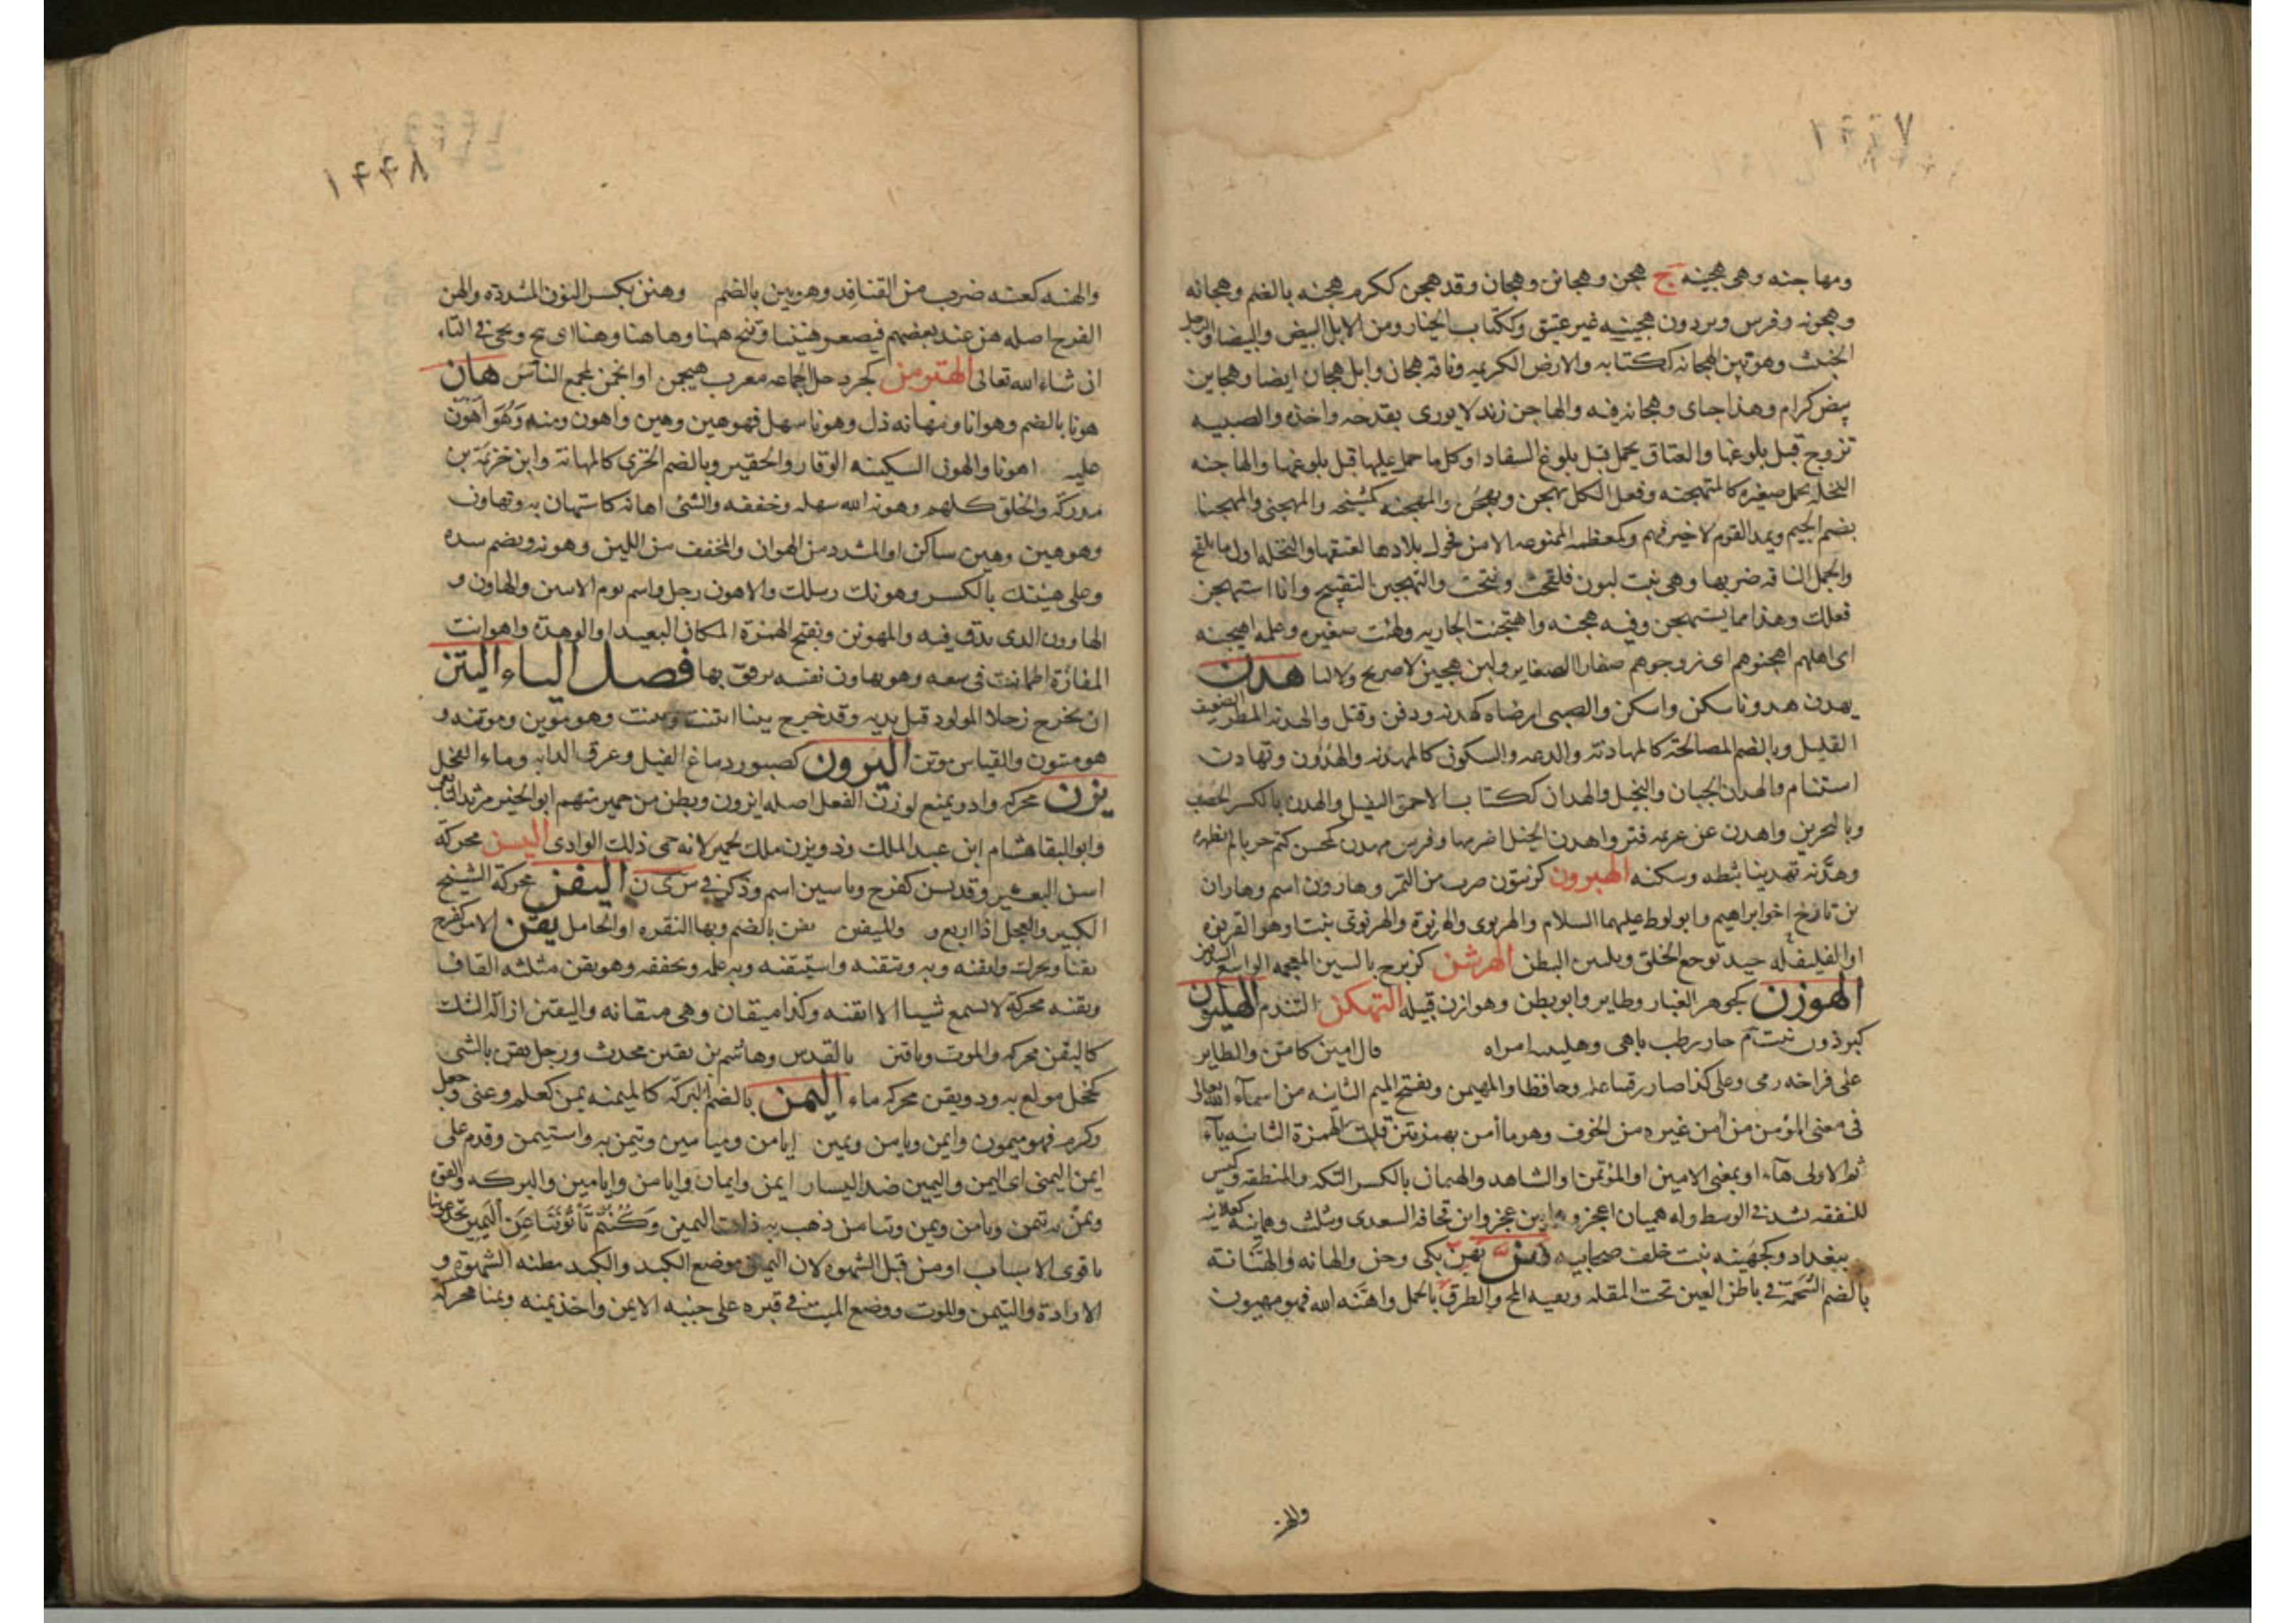 ١٤٤٧
ومهاجنه وهى هجينه ج هجن وهجائن وهجان وقد هجن ككرم هجنه بالضم وهجانه
وهجونه وفرس وبردون هجينه غير عتيق وككتاب الخيار ومن الابل البيض والبيضا والرجل
وهو بين الهجانه ككتابه والارض الكريمه وناقه هجان وابل هجان ايضا وهجاين
بيض كرام وهذا جناى وهجانه فيه والهاجن زند لا يورى بقدحه واحده والصبيه
تزوج قبل بلوغها والعناق يحمل قبل بلوغ السفاد او كل ما حمل عليها قبل بلوغها والهاجنه
النخله يحمل صغيره كالمتهجنه وفعل الكل يهجن ويهجن والمهجنه كمشيخه والمهجنى والمهجنا
بضم الجيم ويمد القوم لا خير فيهم وكمعظمه الممنوعه الا من فحول بلادها لعتقها والنخله اول ما يلقح
والجمل الناقه ضربها وهى بنت لبون فلقحت ونتجت والتهجين التقبيح وانا استهجن
فعلك وهذا مما يستهجن وفيه هجنه واهتجنت الجاريه وطئت صغيره وغلمه اهيجنه
اى اهلهم اهجنوهم اى زوجوهم صغارا الصغاير ولبن هجين لا صريح ولا لبا هدن
يهدن هدونا سكن واسكن والصبى ارضاه كهدنه ودفن وقتل والهدنه المطر الضعيف
القليل وبالضم المصالحة كالمهادنة والدعه والسكون كالمهدنه والهدون وتهادنت
استقام والهدن الجبان والبخيل والهدان ككتاب الاحمق الثقيل والهدن بالكسر الخصب
وبالبحرين واهدن عن عزمه فتر واهدن الخيل اضرمها وفرس مهدن كمحسن كتم جريا لم يظهره
وهدنه تهدينا ثبطه وسكنه الهيرون كزيتون ضرب من التمر وهارون اسم وهاران
بن تارخ اخو ابراهيم وابو لوط عليهما السلام والهرنوى والهرنوة والهرنوتى بنت او هو القرنوه
او الفليفله جيد لوجع الحلق ويلين البطن الهرشن كزبرج بالسين المعجمه الواسع الشدقين
الهوزن كجوهر الغبار وطاير وابو بطن وهوازن قبيله التهكن التندم الهليون
كبرذون نبت م حار رطب باهى وهلينه امراه قال امين كامن والطاير
على فراخه رمى وعلى كذا صار رقيبا عليه وحافظا والمهيمن وبفتح الميم الثانيه من اسماء الله تعالى
فى معنى المؤمن من امن غيره من الخوف وهو ما أمن بهمزتين قلبت الهمزة الثانيه ياء
ثم الاولى هاء او بمعنى الامين او المؤتمن او الشاهد والهميان بالكسر التكه والمنطقه وكيس
للنفقه يشد فى الوسط وله هميان اعجر وهميان بن قحافه السعدى ويثلث وهمانيه كعلانيه
ببغداد وكجهينه بنت خلف صحابيه هن يهن بكى وحن والهانه والهنانة
بالضم الشحمة فى باطن العين تحت المقله وبقيه المخ والطرق بالجمل واهنه الله فهو مهنون
والهنه
١٤٤٨
والهنه كعنه ضرب من القنافد وهو بين بالضم وهنن بكسر النون المشدده والهن
الفرج اصله هن عند بعضهم فيصغر هنينا وتنح ههنا وهاهنا وهنا اى تنح ويجى فى التاء
ان شاء الله تعالى الهنزمن كجردحل الجماعه معرب هنجمن او انجمن لمجمع الناس هان
هونا بالضم وهوانا ومهانه ذل وهونا سهل فهو هين وهين واهون ومنه وهو اهون
عليه اهونا والهون السكينه الوقار والحقير وبالضم الخزى كالمهانة وابن خزيمة بن
مدركة والخلق كلهم وهونه الله سهله وخففه والشئ اهانه كاستهان به وتهاون
وهو هين وهين ساكن او المشدد من الهوان والمخفف من اللين وهونه ويضم سده
وعلى هينتك بالكسر وهونك رسلك والاهون رجل واسم يوم الاثنين والهاون و
الهاوون الذى يدق فيه والمهوئن وبفتح الهمزة المكان البعيد او الوهدة واهوانت
المفازة اطمانت فى سعه وهو يهاون نفسه يرفق بها فصل الياء اليتن
ان يخرج رجلا المولود قبل يديه وقد خرج يتنا ايتنت ويتنت وهو موتن وموتنه و
هو ميتون والقياس موتن اليرون كصبور دماغ الفيل وعرق الدابه وماء الفحل
يزن محركه واد ويمنع لوزن الفعل اصله ايزون وبطن من حمير منهم ابو الخير مرثد
وابو البقا هشام ابن عبد الملك وذو يزن ملك لحمير لانه حمى ذلك الوادى اليسن محركة
اسن البئر وقد يسن كفرح وياسين اسم وذكر فى س ى ن اليفن محركة الشيخ
الكبير والعجل اذا اربع و واليفن يفن بالضم وبها البقره او الحامل يقن الامر كفرح
يقنا ويحرك وايقنه وبه وتيقنه واستيقنه وبه علمه وتحققه وهو يقن مثلثه القاف
ويقنه محركة لا يسمع شيئا الا ايقنه وكذا ميقان وهى ميقانه واليقين ازاله الشك
كاليقن محركه والموت وياقين بالقدس وهاشم بن يقين محدث ورجل يقن بالشى
كخجل مولع به وذو يقن محركه ماء اليمن بالضم البركة كالميمنه يمن كعلم وعنى وجعل
وكرم فهو ميمون وايمن ويامن ويمين ايامن وميامين وتيمن به واستيمن وقدم على
ايمن اليمنى اى اليمن واليمين ضد اليسار ايمن وايمان وايامن وايامين والبركه والقوه
ويمن به تيمن ويامن ويمن وتيامن ذهب به ذات اليمين وكنتم تأتوننا عن اليمين
باقوى الاسباب او من قبل الشهوه لان اليمين موضع الكبد والكبد مظنه الشهوه و
الارادة والتيمن والموت ووضع الميت فى قبره على جنبه الايمن واخذ يمنه ويمنا محركه